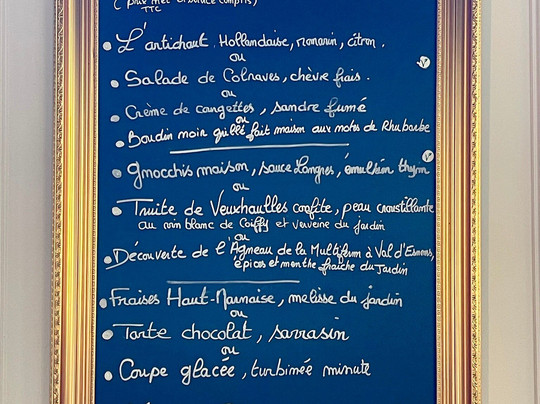 (prix net et service compris)
TTC
• L'artichaut, Hollandaise, romarin, citron.
ou
• Salade de Colraves, chèvre frais.
V
ou
• Crème de courgettes, sandre fumé
ou
• Boudin noir grillé fait maison aux notes de Rhubarbe
• Gnocchis maison, sauce Langres, émulsion thym
V
ou
• Truite de Veuxhaulles confite, peau croustillante
au vin blanc de Coiffy et verveine du jardin
ou
• Découverte de l'Agneau de la Multiferm à Val d'Esnoms,
épices et menthe fraîche du Jardin
• Fraises Haut-Marnaise, mélisse du jardin
ou
• Tarte chocolat, sarrasin
ou
• Coupe glacée, turbinée minute